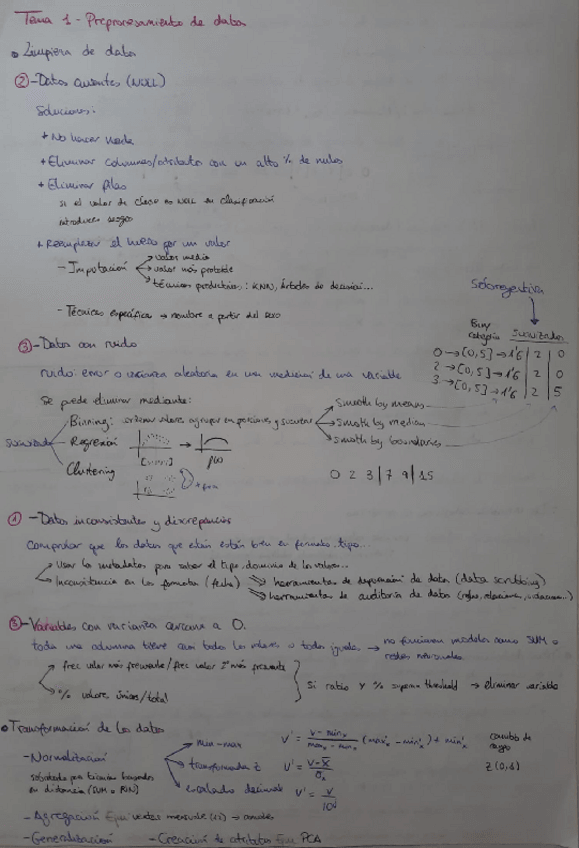 Tema 1 - Preprocesamiento de datos
• Limpieza de datos
② - Datos ausentes (NULL)
Soluciones:
+ No hacer nada
+ Eliminar columnas/atributos con un alto % de nulos
+ Eliminar filas
si el valor de clase es NULL en clasificación
introduce sesgo
+ Reemplazar el hueco por un valor
- Imputación
valor medio
valor más probable
técnicas predictivas: KNN, árboles de decisión...
- Técnicas específicas → nombre a partir del sexo
③ - Datos con ruido
ruido: error o varianza aleatoria en una medición de una variable
Se puede eliminar mediante:
suavizado
Binning: ordenar valores, agrupar en porciones y suavizar
smooth by means
smooth by median
smooth by boundaries
Regresión
Clustering
0 2 3 | 7 9 | 15
Suavizados
0 → [0,5] → 1'6 | 2 | 0
2 → [0,5] → 1'6 | 2 | 0
3 → [0,5] → 1'6 | 2 | 5
① - Datos inconsistentes y discrepancias
Comprobar que los datos que están están bien en formato, tipo...
Usar los metadatos para saber el tipo, dominio de los valores...
Inconsistencia en los formatos (fecha)
herramientas de depuración de datos (data scrubbing)
herramientas de auditoría de datos (reglas, relaciones, ...)
⑤ - Variables con varianza cercana a 0.
toda una columna tiene casi todos los valores o todos iguales → no funcionan modelos como SVM o redes neuronales
frec valor más frecuente / frec valor 2º más frecuente
% valores únicos/total
Si ratio y % supera threshold → eliminar variable
• Transformación de los datos
- Normalización
sobretodo para técnicas basadas
en distancia (SVM o KNN)
min-max V' = v - minₓ / maxₓ - minₓ (max'ₓ - min'ₓ) + min'ₓ cambio de rango
transformada z V' = v - x̄ / σₓ Z(0,1)
escalado decimal V' = v / 10ʲ
- Agregación Ejm: ventas mensuales (12) → anuales
- Generalización - Creación de atributos Ejm PCA